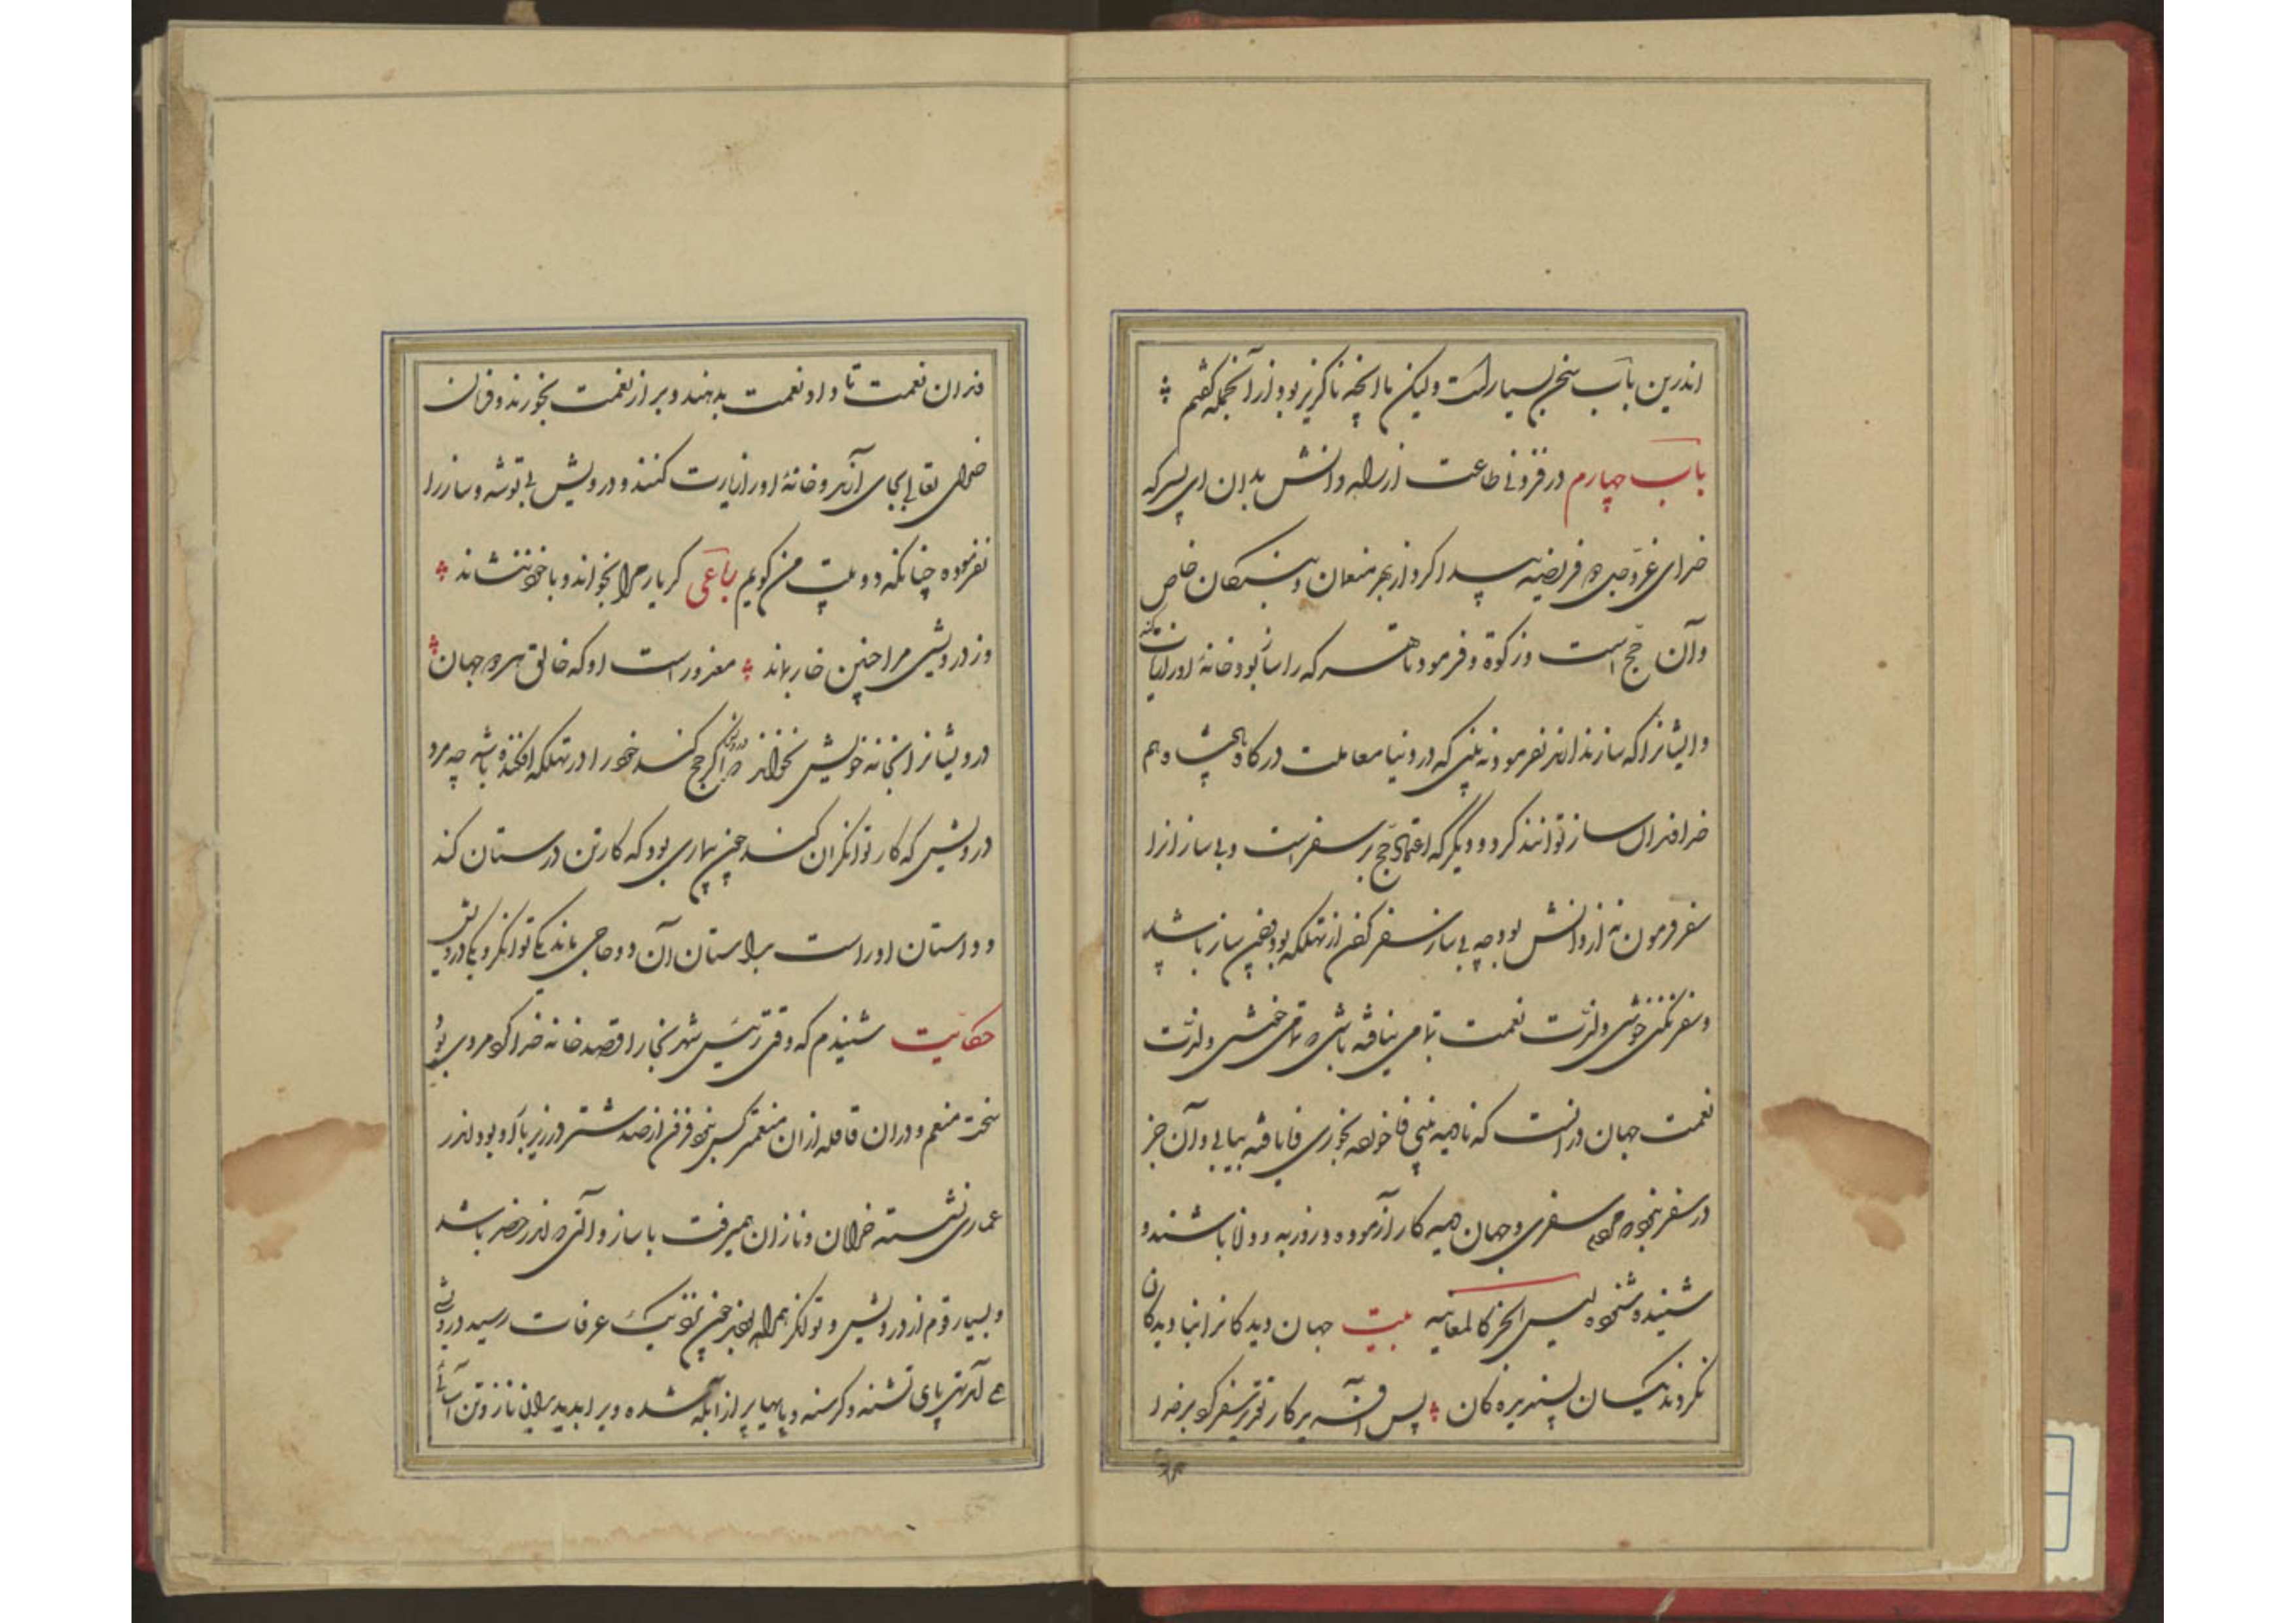 اندرین باب سخن بسیار است ولیکن ما آنچه ناگزیر بود از آنجمله گفتیم
باب چهارم در فزونی طاعت از راه دانش بدان ای پسر که
خدای عزّوجل دو فریضه پیدا کرد از بهر منعمان و بندگان خاص
وآن حج است وزکوة وفرمود تا هر که را ساز بود خانهٔ اورا زیارت کند
وایشانرا که ساز ندارند نفرمود نه بینی که در دنیا معاملت درگاه پادشاه هم
خداوندان ساز توانند کرد و دیگر که اعتماد حج بر سفر است و بی سازانرا
سفر فرمودن نه از دانش بود چه بی ساز سفر کردن از تهلکه بود چون ساز باشد
وسفر نکنی خوشی ولذّت نعمت بتمامی نیافته باشی که تمامی خوشی ولذّت
نعمت جهان در آنست که نادیده بینی ناخورده بخوری نایافته بیابی وآن جز
در سفر نبود مردم سفری وجهان دیده کار آزموده و روزبه و دانا باشند و
شنیده شنوده لیس الخبر کالمعاینه بیت جهان دیدگانرا نادیدگان
نکردند یکسان پسندیدگان پس آفریننده برکار تقدیر سفر کرد بر خدا
وندان نعمت تا داد نعمت بدهند وبر از نعمت بخورند وفرمان
خدای تعالی بجای آرند وخانهٔ اورا زیارت کنند ودرویش بی توشه وساز را
نفرموده چنانکه دو بیت من گویم رباعی گر یار مرا نخواند وبا خود ننشاند
وز درویشی مرا چنین خار بماند معذور است او که خالق هر دو جهان
درویشانرا بخانه خویش نخواند درویش که اگر حج کند خود را در تهلکه افکنده باشد چه مرد
درویش که کار توانگران کند چون بیماری بود که کار تن درستان کند
وداستان اوراست براستان آن دو حاجی ماند یکی توانگر ویکی درویش
حکایت شنیدم که وقتی رئیس شهر بخارا قصد خانه خدا کرد مردی بود
سخت منعم ودران قافله ازان منعمتر کس نبود فزون از صد شتر در زیر بار او بود واندر
عماری نشسته خرامان ونازان همیرفت با ساز وآلتی که اندر حضر باشد
وبسیار قوم از درویش وتوانگر همراه بودند چون نزدیک عرفات رسید درویشی
همی آمد تهی پای تشنه وگرسنه وپایها پر از آبله شده ویرا بدید بدان ناز وتن آسانی